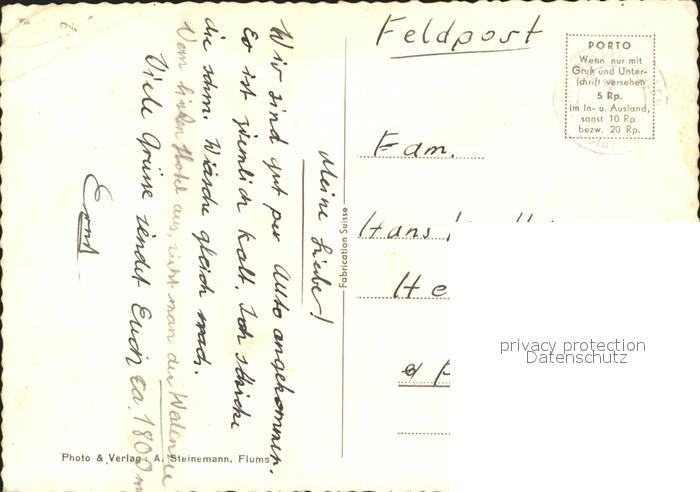 Feldpost
PORTO
Wenn nur mit
Gruß und Unter-
schrift versehen
5 Rp.
im In- u. Ausland,
sonst 10 Rp
bezw. 20 Rp.
Fam.
Hans
He
privacy protection
Datenschutz
Fabrication Suisse
Meine Liebe!
Wir sind gut per Auto angekommen.
Es ist ziemlich kalt. Ich schicke
die schm. Wäsche gleich nach.
Vom linken Hotel aus sieht man den Walensee
Viele Grüsse sendet Euch ca. 1800 m
Ernst
Photo & Verlag: A. Steinemann, Flums